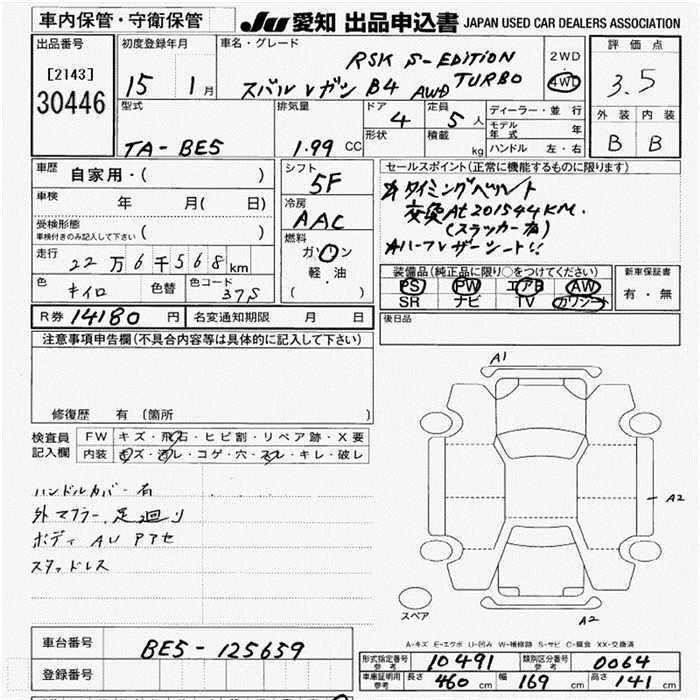 車内保管・守衛保管
JU 愛知 出品申込書 JAPAN USED CAR DEALERS ASSOCIATION
出品番号
[2143]
30446
初度登録年月
15 1月
車名・グレード
RSK S-EDITION
スバル レガシ B4 AWD TURBO
2WD
4WD
評価点
3.5
外装 内装
B B
型式
TA-BE5
排気量
1.99 CC
ドア
4
定員
5人
形状
積載
kg
ディーラー・並行
モデル年式 年
ハンドル 左・右
車歴
自家用・( )
車検
年 月( 日)
受検形態
車検付きのみ記入して下さい ( )
走行
22万6千568km
色
キイロ
色替
色コード
37S
シフト
5F
冷房
AAC
燃料
ガソリン
軽・油
( )
セールスポイント(正常に機能するものに限ります)
タイミングベルト
交換At201544KM.
ハーフレザーシート!!
装備品(純正品に限り○をつけてください)
PS PW エアB AW
SR ナビ TV カワシート
新車保証書
有・無
後日品
R券 14180円
名変通知期限 月 日
注意事項申告欄(不具合内容等は具体的に記入して下さい)
修復歴 有(箇所 )
検査員記入欄
FW キズ・飛石・ヒビ割・リペア跡・X要
内装 キズ・汚レ・コゲ・穴・スレ・キレ・破レ
ハンドルカバー有
外マフラー、足廻り
ボディ AU アアセ
スタッドレス
A1
A2
スペア
A2
A-キズ E-エクボ U-凹み W-補修跡 S-サビ C-腐食 XX-交換済
車台番号
BE5-125659
登録番号
形式指定番号参考 10491
類別区分番号参考 0064
車庫証明用参考 長さ 460cm 幅 169cm 高さ 141cm